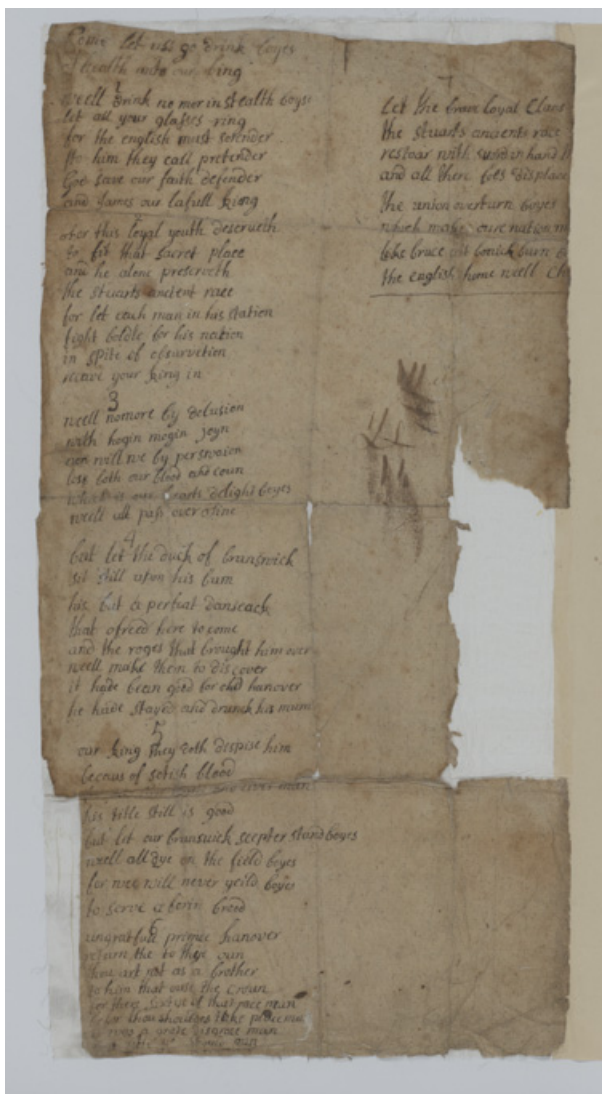 Come let uss go drink boyes
A health unto our king
1
weell drink no mor in stealth boyse
let all your glases ring
for the english must serender
to him they call pretender
God save our faith defender
and James our lafull king
for this loyal youth deserveth
to fit that sacret place
and he alone preserveth
the stuarts ancient race
for let each man in his station
fight boldle for his nation
in spite of
your king in
3
weell nomore by delusion
with hogin mogin joyn
nor will we by perswaion
lose both our blood and coun
what is our hearts delight boyes
weell all pass over
4
but let the duck of brunswick
sit still upon his bum
his but a perfeat
that ofreed here to come
and the roges that brought him over
weell make them to discover
it hade been good for old hanover
he hade stayed and drunk his mum
5
our king they doth dispise him
becaus of sotish blood
man
his title still is good
but let our brunswick scepter stand boyes
weell all dye on the field boyes
for wee will never yeild boyes
to serve a breed
6
ungratfull prince hanover
return the to thy oun
thou art not as a brother
to him that ows the croun
for there of that race man
man
Let the brave loyal Clans
the stuarts ancients race
restoar with sword in hand
and all there foes displace
the union overturn boyes
which makes oure nation
like bruce att burn
the english home weell